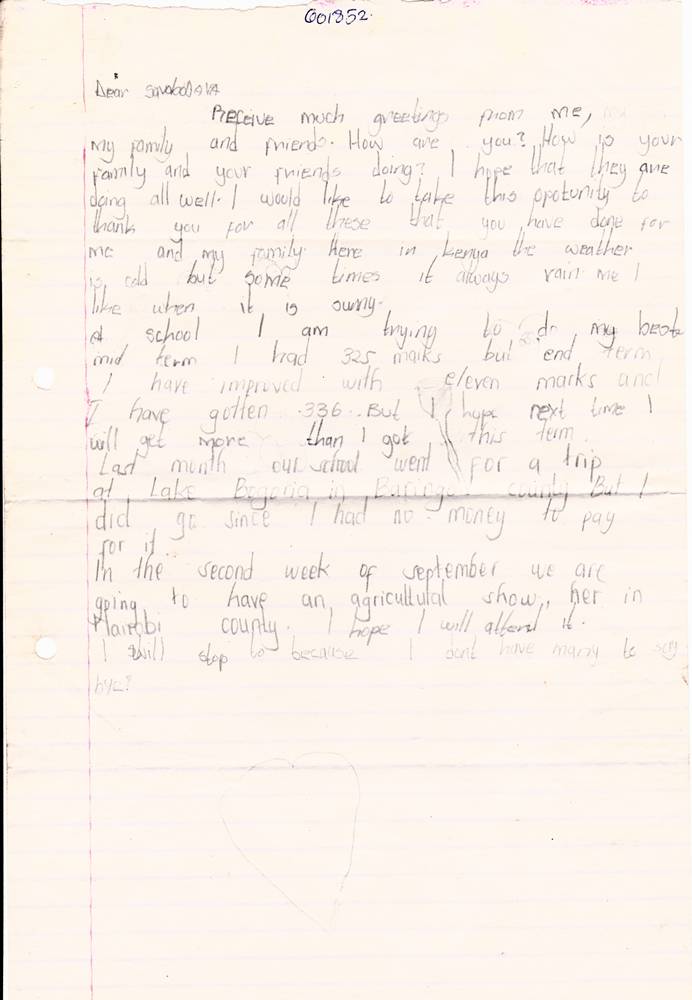 G01852.
Dear Svobodova
Receive much greetings from me,
my family and friends. How are you? How is your
family and your friends doing? I hope that they are
doing all well. I would like to take this opotunity to
thank you for all these that you have done for
me and my family. Here in kenya the weather
is cold but some times it always rain me I
like when it is sunny.
At school I am trying to do my best
mid term I had 325 marks but end term
I have improved with eleven marks and
I have gotten 336. But I hope next time I
will get more than I got this term.
Last month our school went for a trip
at Lake Bogoria in Baringo county But I
did go since I had no money to pay
for it.
In the second week of september we are
going to have an agricultutal show, her in
Nairobi county. I hope I will attend it.
I will stop to because I dont have many to say
bye!